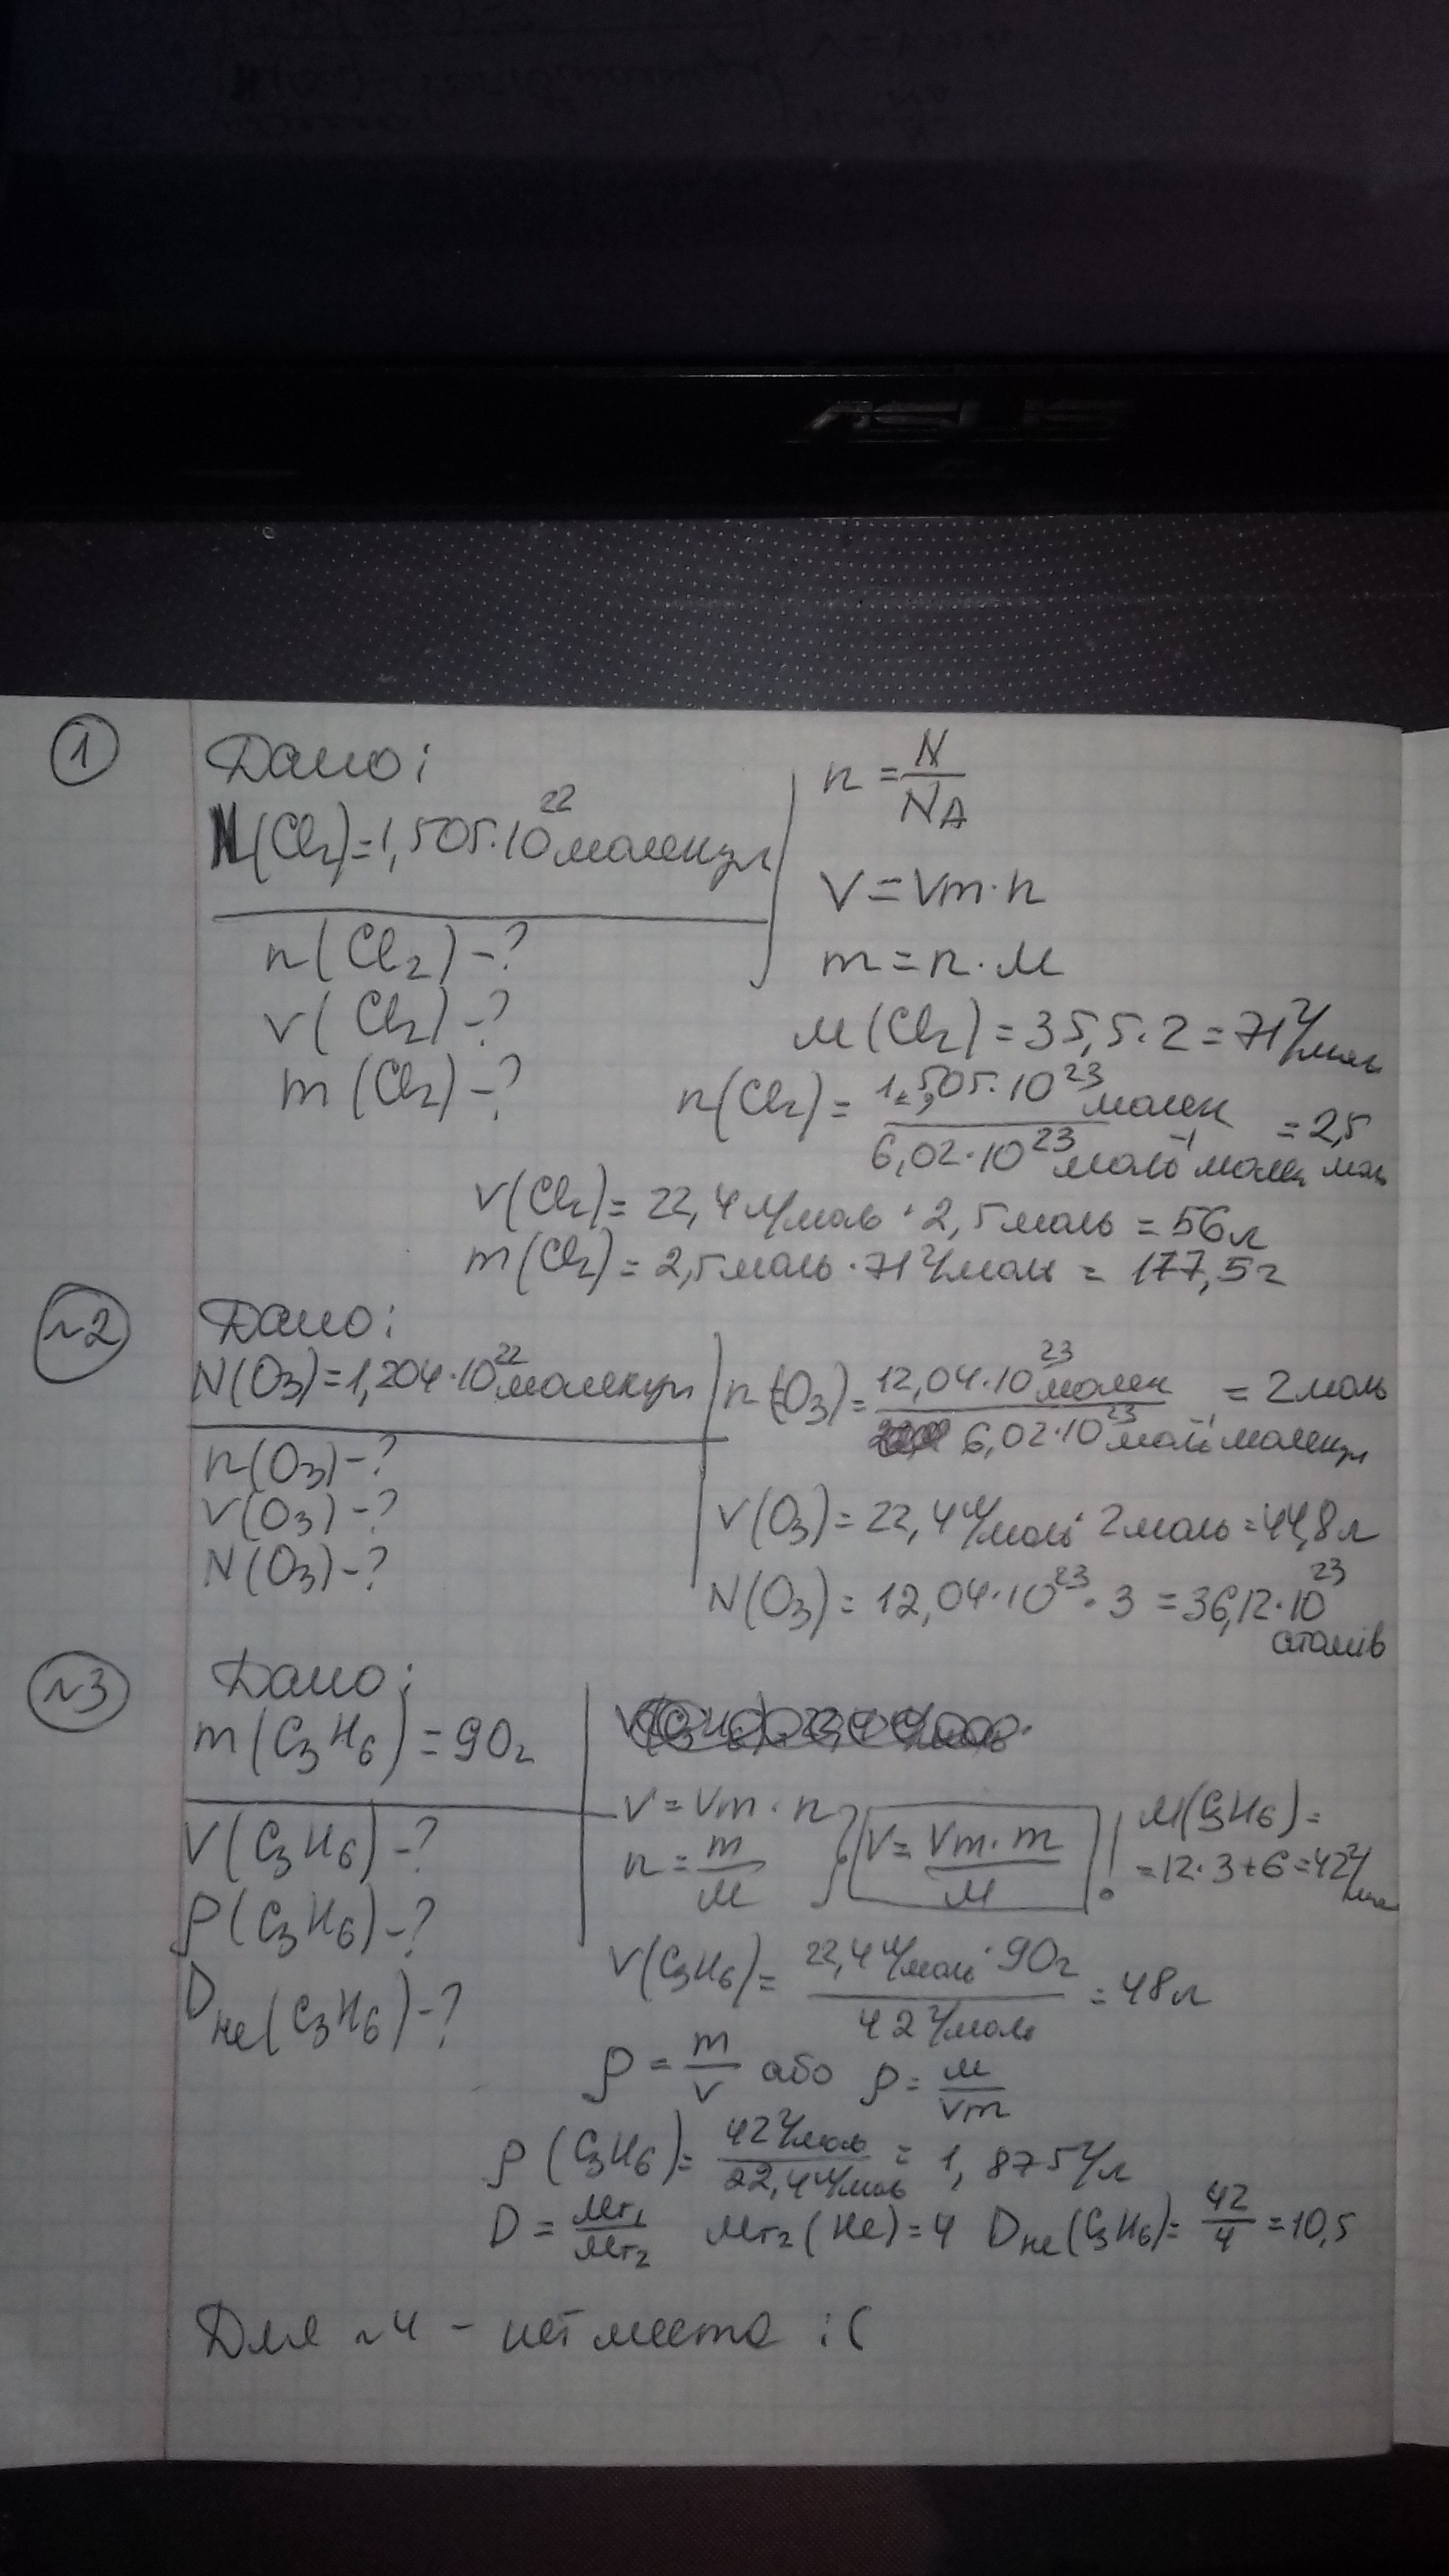 ASUS
① Дано:
N(Cl₂)=1,505·10²² молекул
n(Cl₂)-?
V(Cl₂)-?
m(Cl₂)-?
n = N/N_A
V = Vm·n
m = n·M
M(Cl₂) = 35,5·2 = 71 г/моль
n(Cl₂) = 1,505·10²³ молек / 6,02·10²³ моль⁻¹ молек = 2,5 моль
V(Cl₂) = 22,4 л/моль · 2,5 моль = 56 л
m(Cl₂) = 2,5 моль · 71 г/моль = 177,5 г
~2 Дано:
N(O₃)=1,204·10²² молекул
n(O₃)-?
V(O₃)-?
N(O₃)-?
n(O₃) = 12,04·10²³ молек / 6,02·10²³ моль⁻¹ молекул = 2 моль
V(O₃) = 22,4 л/моль · 2 моль = 44,8 л
N(O₃) = 12,04·10²³ · 3 = 36,12·10²³
атомів
~3 Дано:
m(C₃H₆) = 90 г
V(C₃H₆)-?
ρ(C₃H₆)-?
D_He(C₃H₆)-?
V = Vm·n
n = m/M
V = Vm·m/M !
M(C₃H₆) =
= 12·3+6 = 42 г/моль
V(C₃H₆) = 22,4 л/моль · 90 г / 42 г/моль = 48 л
ρ = m/V або ρ = M/Vm
ρ(C₃H₆) = 42 г/моль / 22,4 л/моль = 1,875 г/л
D = Mr₁/Mr₂ Mr₂(He) = 4 D_He(C₃H₆) = 42/4 = 10,5
Для ~4 - нет места :(